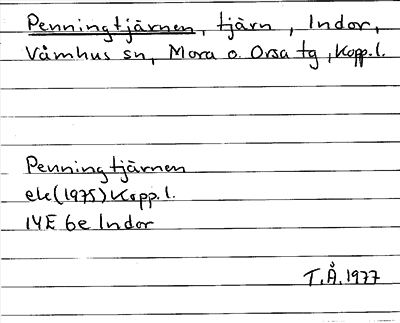 Penningtjärnen, tjärn, Indor,
Våmhus sn, Mora o. Orsa tg, Kopp.l.
Penningtjärnen
ek(1975) Kopp.l.
14E 6e Indor
T.Å.1977